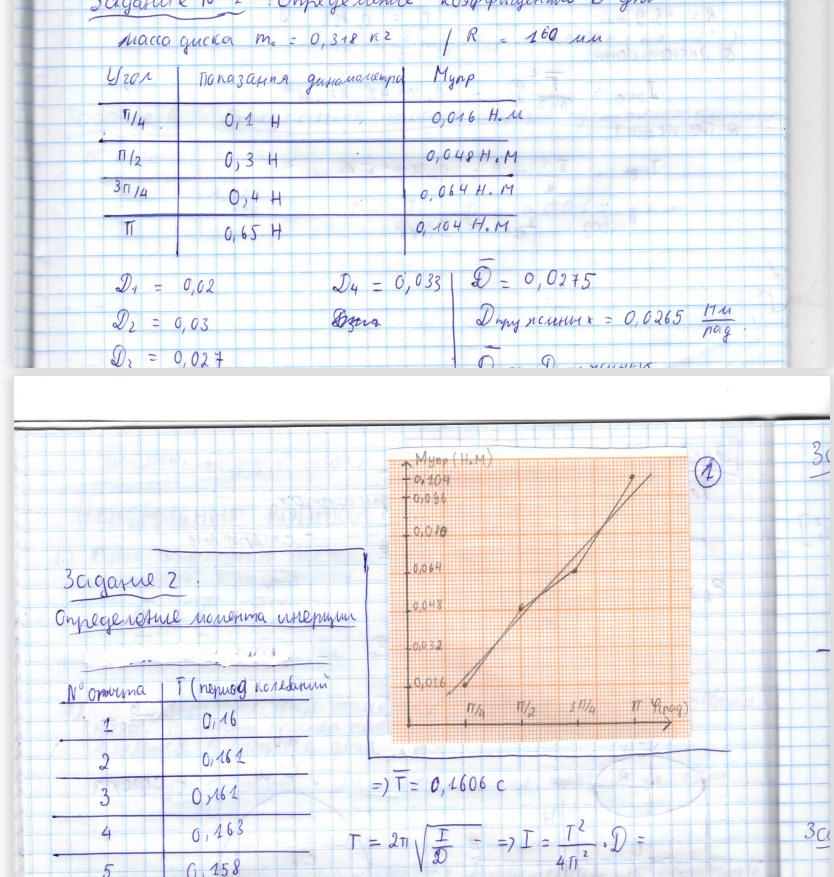 Задание № 1 Определение коэффициента D для
масса диска m₀ = 0,318 кг / R = 160 мм
Угол Показания динамометра Mупр
π/4 0,1 Н 0,016 Н.м
π/2 0,3 Н 0,048 Н.М
3π/4 0,4 Н 0,064 Н.М
π 0,65 Н 0,104 Н.М
D₁ = 0,02 D₄ = 0,033 D̅ = 0,0275
D₂ = 0,03 Dпружинных = 0,0265 Нм/рад.
D₃ = 0,027
Mупр (Н.М) 1
0,104
0,096
0,080
0,064
0,048
0,032
0,016
π/4 π/2 3π/4 π φ(рад)
Задание 2.
Определение момента инерции
N° опыта T (период колебаний
1 0,16
2 0,161
3 0,161
4 0,163
5 0,158
=> T̅ = 0,1606 с
T = 2π √(I/D) => I = T²/4π² · D =
За
За